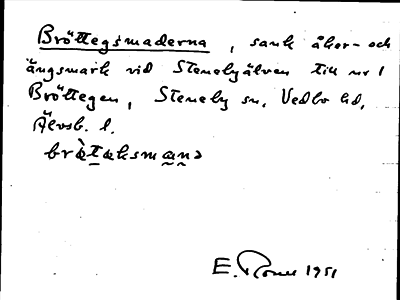 Bröttegsmaderna, sank åker- och
ängsmark vid Stenebyälven till nr 1
Bröttegen, Steneby sn, Vedbo hd,
Älvsb. l.
E. 1951